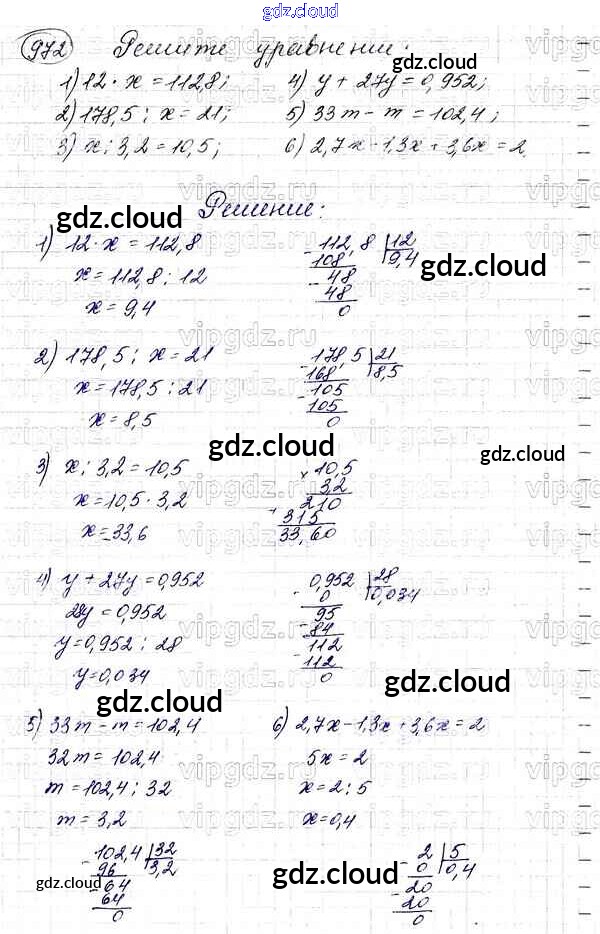 gdz.cloud
972 Решите уравнение:
1) 12 · x = 112,8; 4) y + 27y = 0,952;
2) 178,5 : x = 21; 5) 33m - m = 102,4;
3) x : 3,2 = 10,5; 6) 2,7x - 1,3x + 3,6x = 2.
Решение:
gdz.cloud
1) 12 · x = 112,8
x = 112,8 : 12
x = 9,4
- 112,8 | 12
108 | 9,4
- 48
48
0
gdz.cloud
2) 178,5 : x = 21
x = 178,5 : 21
x = 8,5
- 178,5 | 21
168 | 8,5
- 105
105
0
gdz.cloud
gdz.cloud
3) x : 3,2 = 10,5
x = 10,5 · 3,2
x = 33,6
× 10,5
3,2
+ 210
315
33,60
4) y + 27y = 0,952
28y = 0,952
y = 0,952 : 28
y = 0,034
- 0,952 | 28
0 | 0,034
95
- 84
- 112
112
0
gdz.cloud
gdz.cloud
5) 33m - m = 102,4
32m = 102,4
m = 102,4 : 32
m = 3,2
- 102,4 | 32
96 | 3,2
- 64
64
0
gdz.cloud
6) 2,7x - 1,3x + 3,6x = 2
5x = 2
x = 2 : 5
x = 0,4
- 2 | 5
0 | 0,4
- 20
20
0
gdz.cloud
vipgdz.ru